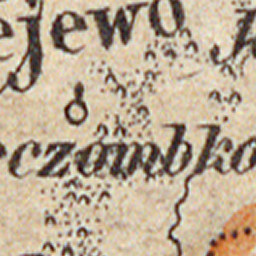 ejewo
eczambko